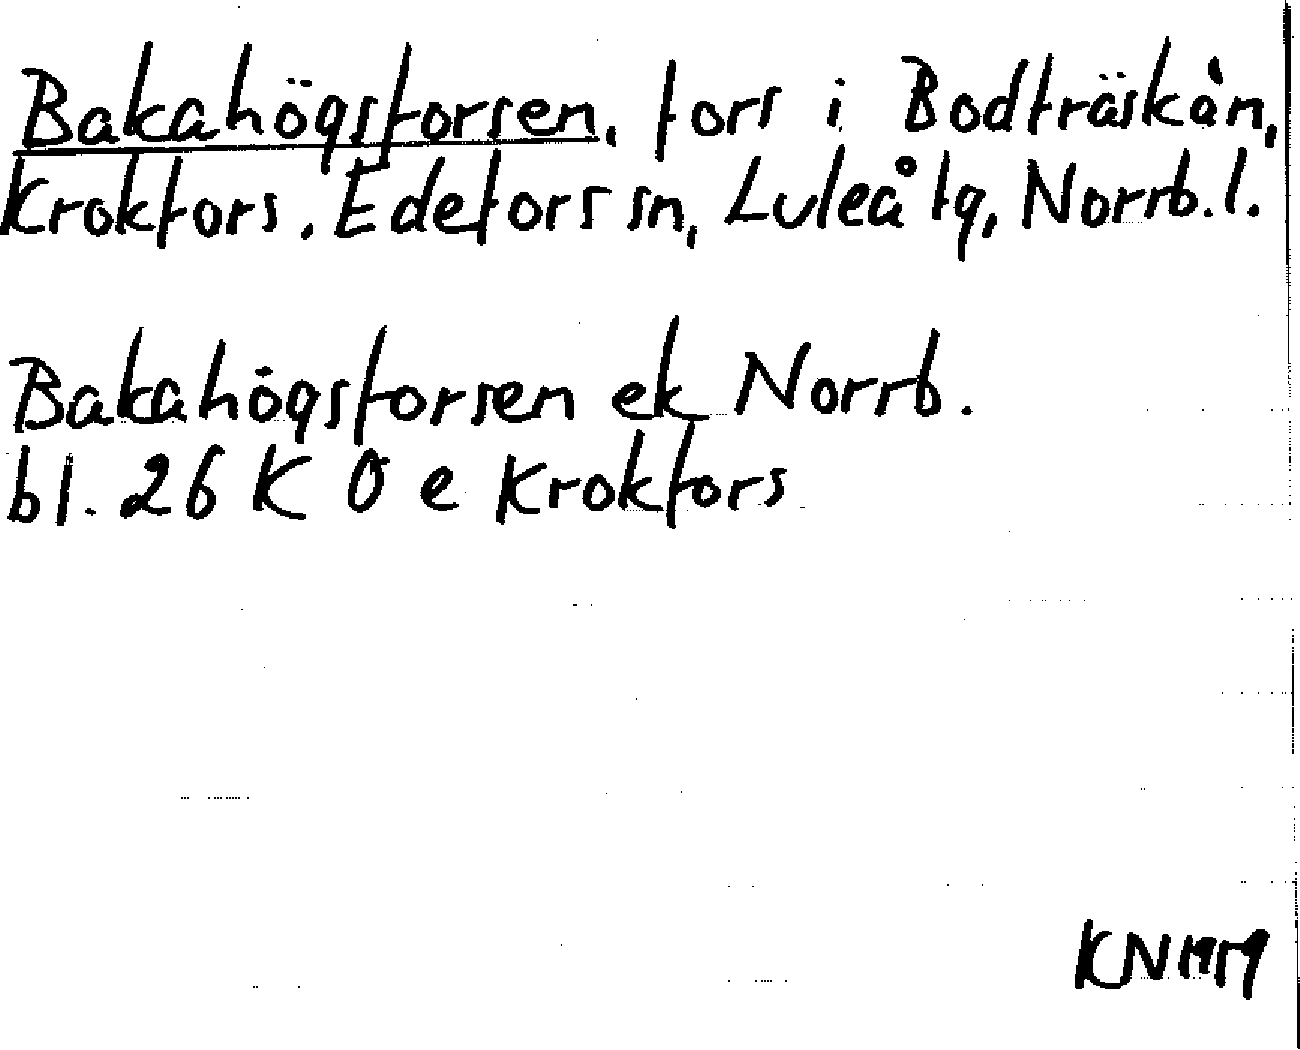 Bakahögsforsen, fors i Bodträskån,
Krokfors. Edefors sn, Luleå tg, Norrb. l.
Bakahögsforsen ek Norrb.
bl. 26 K 0 e Krokfors
KN